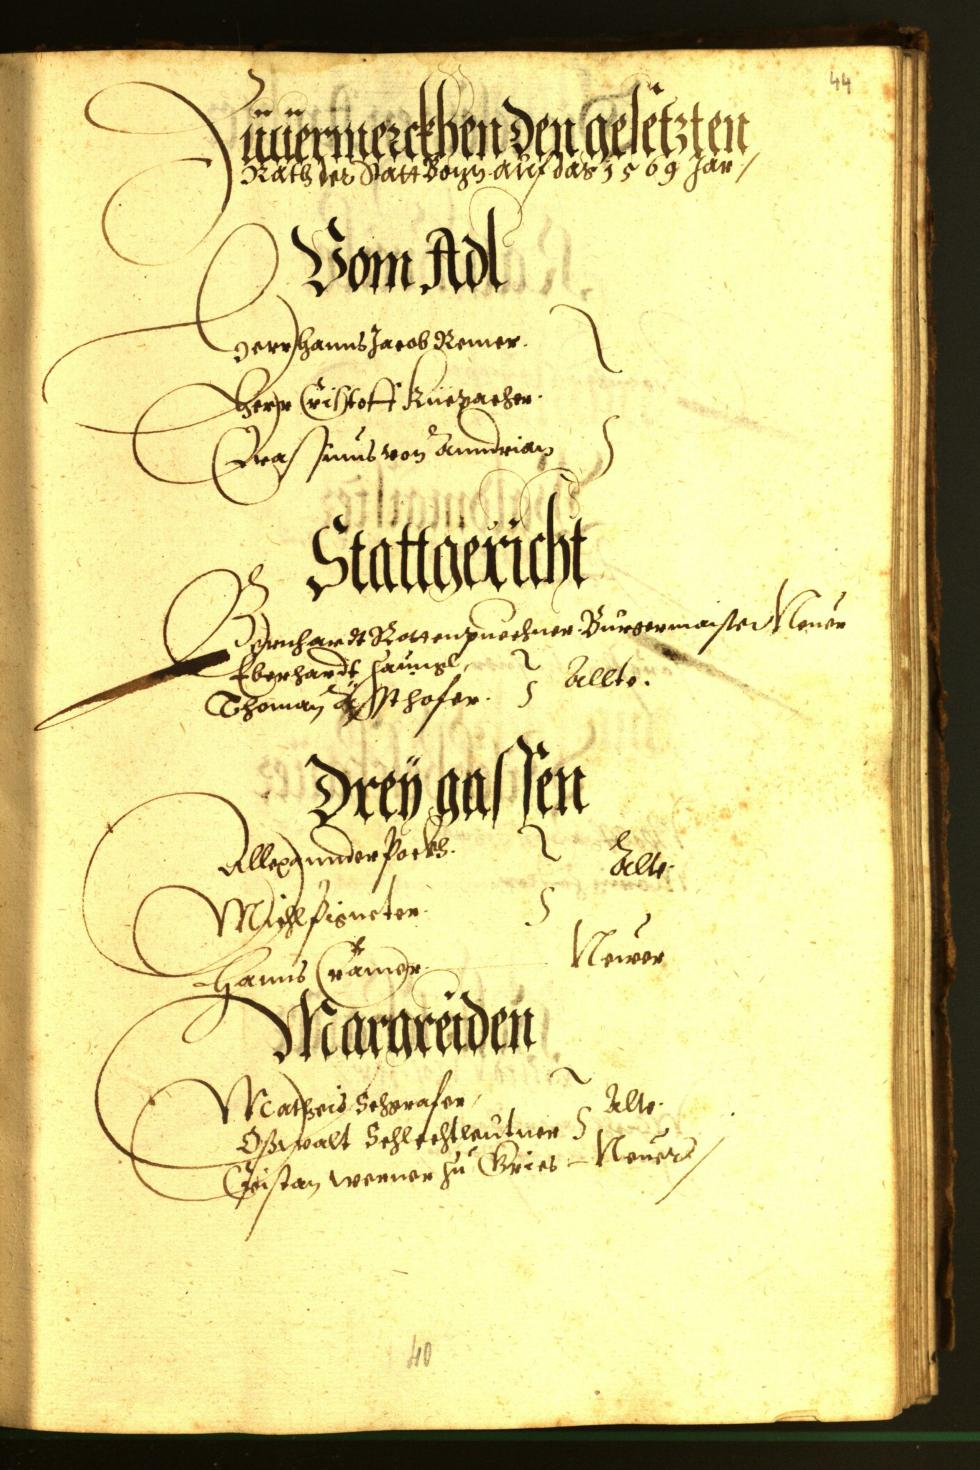 44
Zuüermerckhen den gesetzten
Rath der Statt Bozn auf das 1569 Jar /
Vom Adl
Herr Hanns Jacob Remer.
Herr Cristoff Küepacher.
von Anndrian
Stattgericht
Bernhardt Rottenpuechner Burgermaister Neuer
Eberhardt
Thoman Assthofer. Allte.
Dreÿ gassen
Allexannder Pockh. Alte.
Michl
Hanns Cramer. Newer
Margreiden
Matheis Schgrafer, Alte.
Oßwalt Schlechtleutner
Cristan Werner zu Gries – Neuer /
40